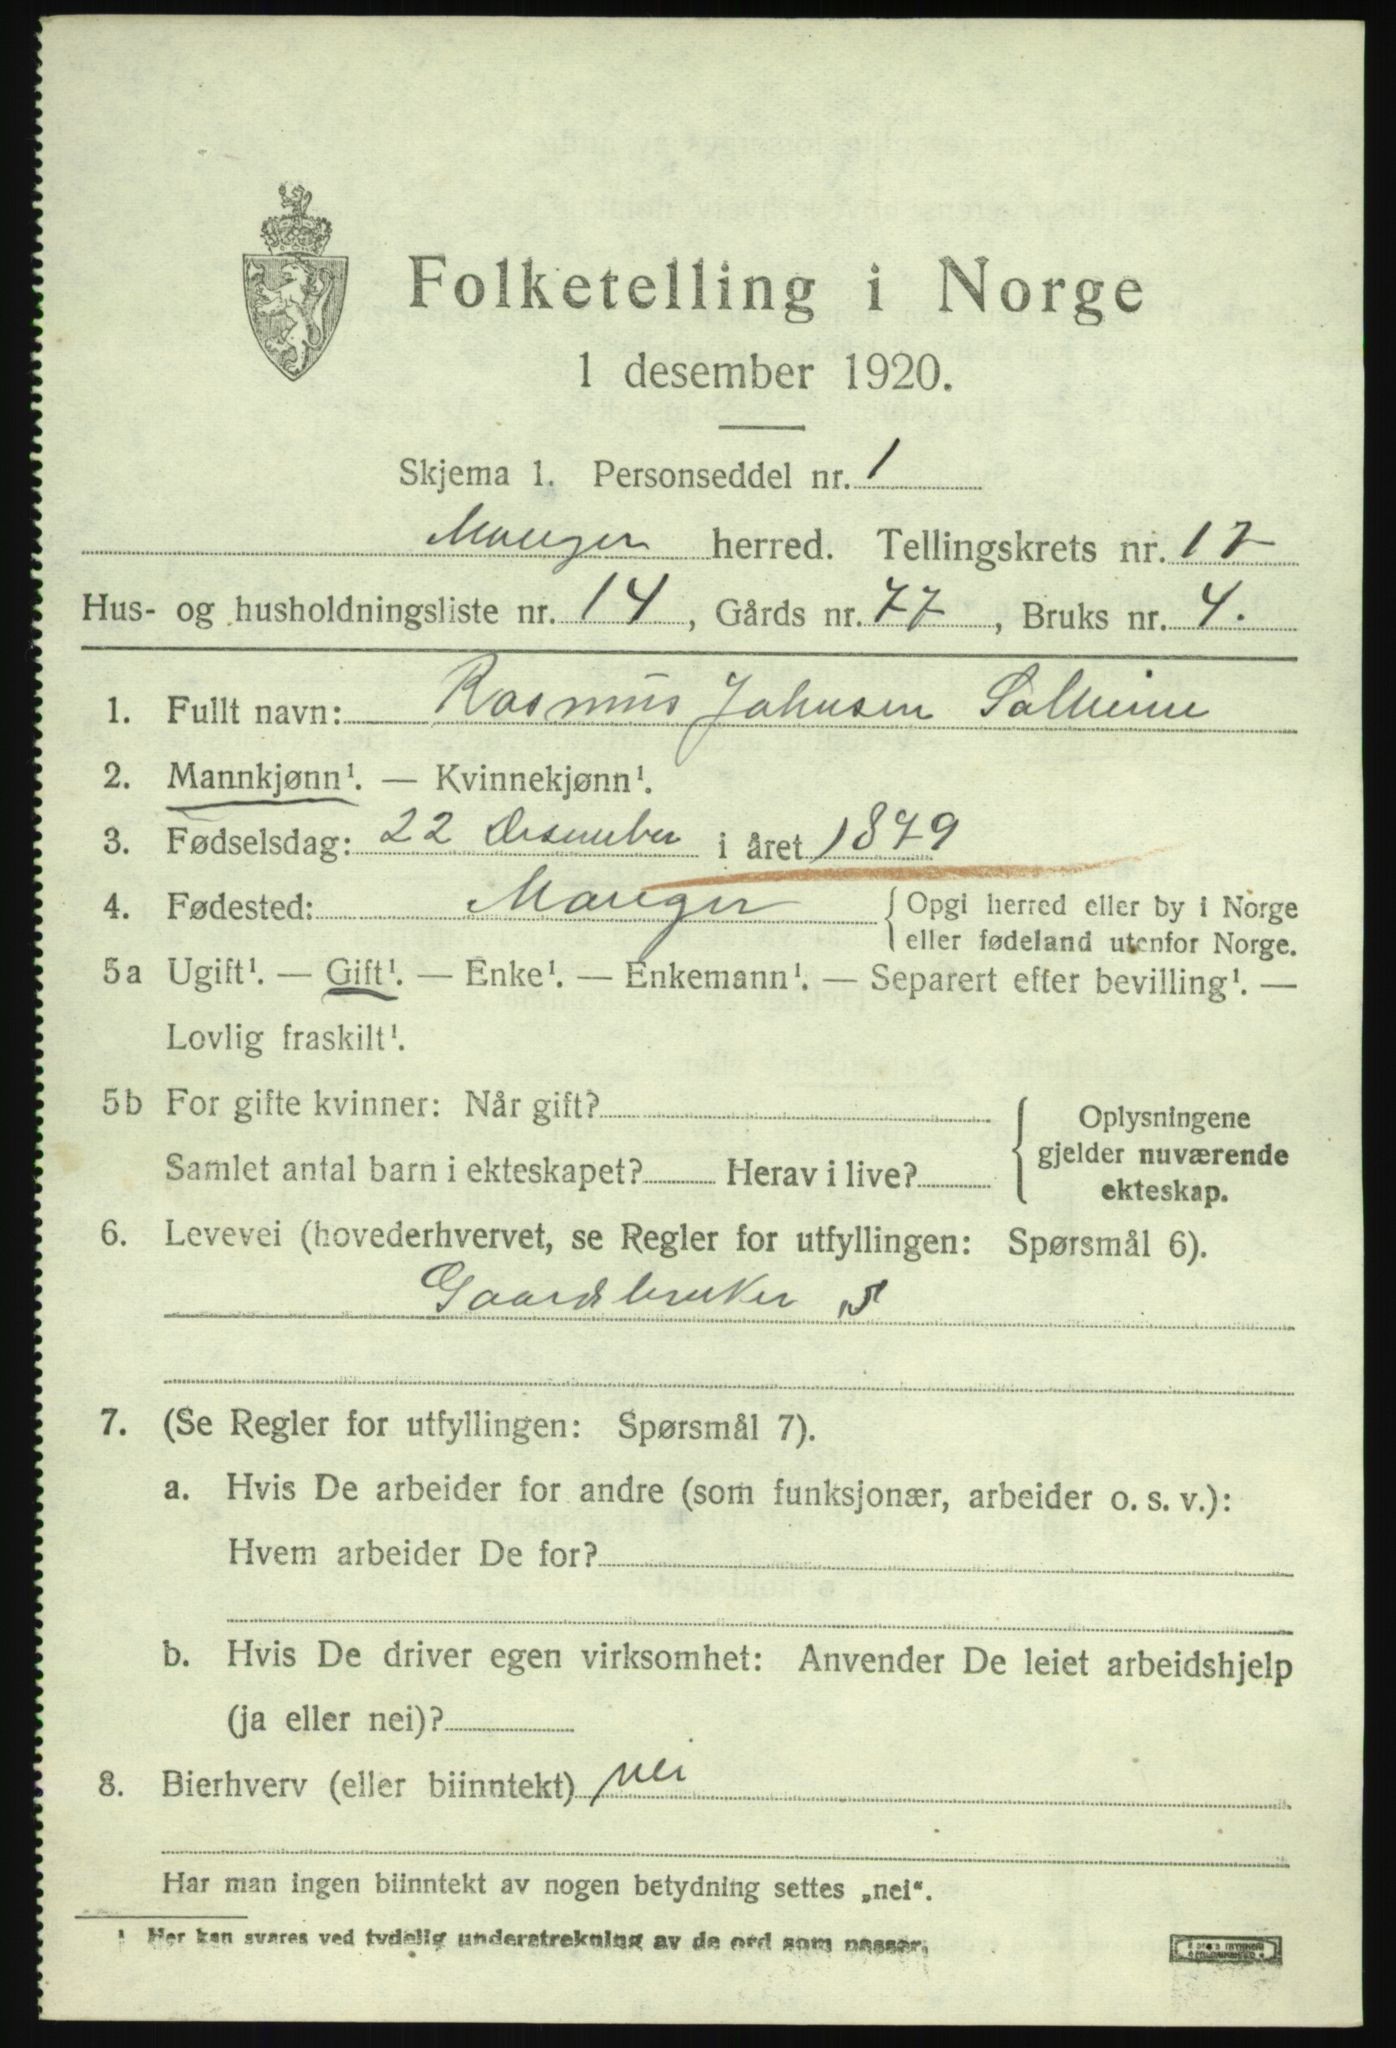 Folketelling i Norge
1 desember 1920.
Skjema 1. Personseddel nr. 1
Manger herred. Tellingskrets nr. 17
Hus- og husholdningsliste nr. 14, Gårds nr. 77, Bruks nr. 4.
1. Fullt navn: Rasmus Johnsen Solheim
2. Mannkjønn¹. — Kvinnekjønn¹.
3. Fødselsdag: 22 Desember i året 1849
4. Fødested: Manger { Opgi herred eller by i Norge
eller fødeland utenfor Norge.
5a Ugift¹. — Gift¹. — Enke¹. — Enkemann¹. — Separert efter bevilling¹. —
Lovlig fraskilt¹.
5b For gifte kvinner: Når gift?
Samlet antal barn i ekteskapet? Herav i live?
{ Oplysningene
gjelder nuværende
ekteskap.
6. Levevei (hovederhvervet, se Regler for utfyllingen: Spørsmål 6).
Gaardsbruker S
7. (Se Regler for utfyllingen: Spørsmål 7).
a. Hvis De arbeider for andre (som funksjonær, arbeider o. s. v.):
Hvem arbeider De for?
b. Hvis De driver egen virksomhet: Anvender De leiet arbeidshjelp
(ja eller nei)?
8. Bierhverv (eller biinntekt) nei
Har man ingen biinntekt av nogen betydning settes „nei“.
¹ Her kan svares ved tydelig understrekning av de ord som passer.